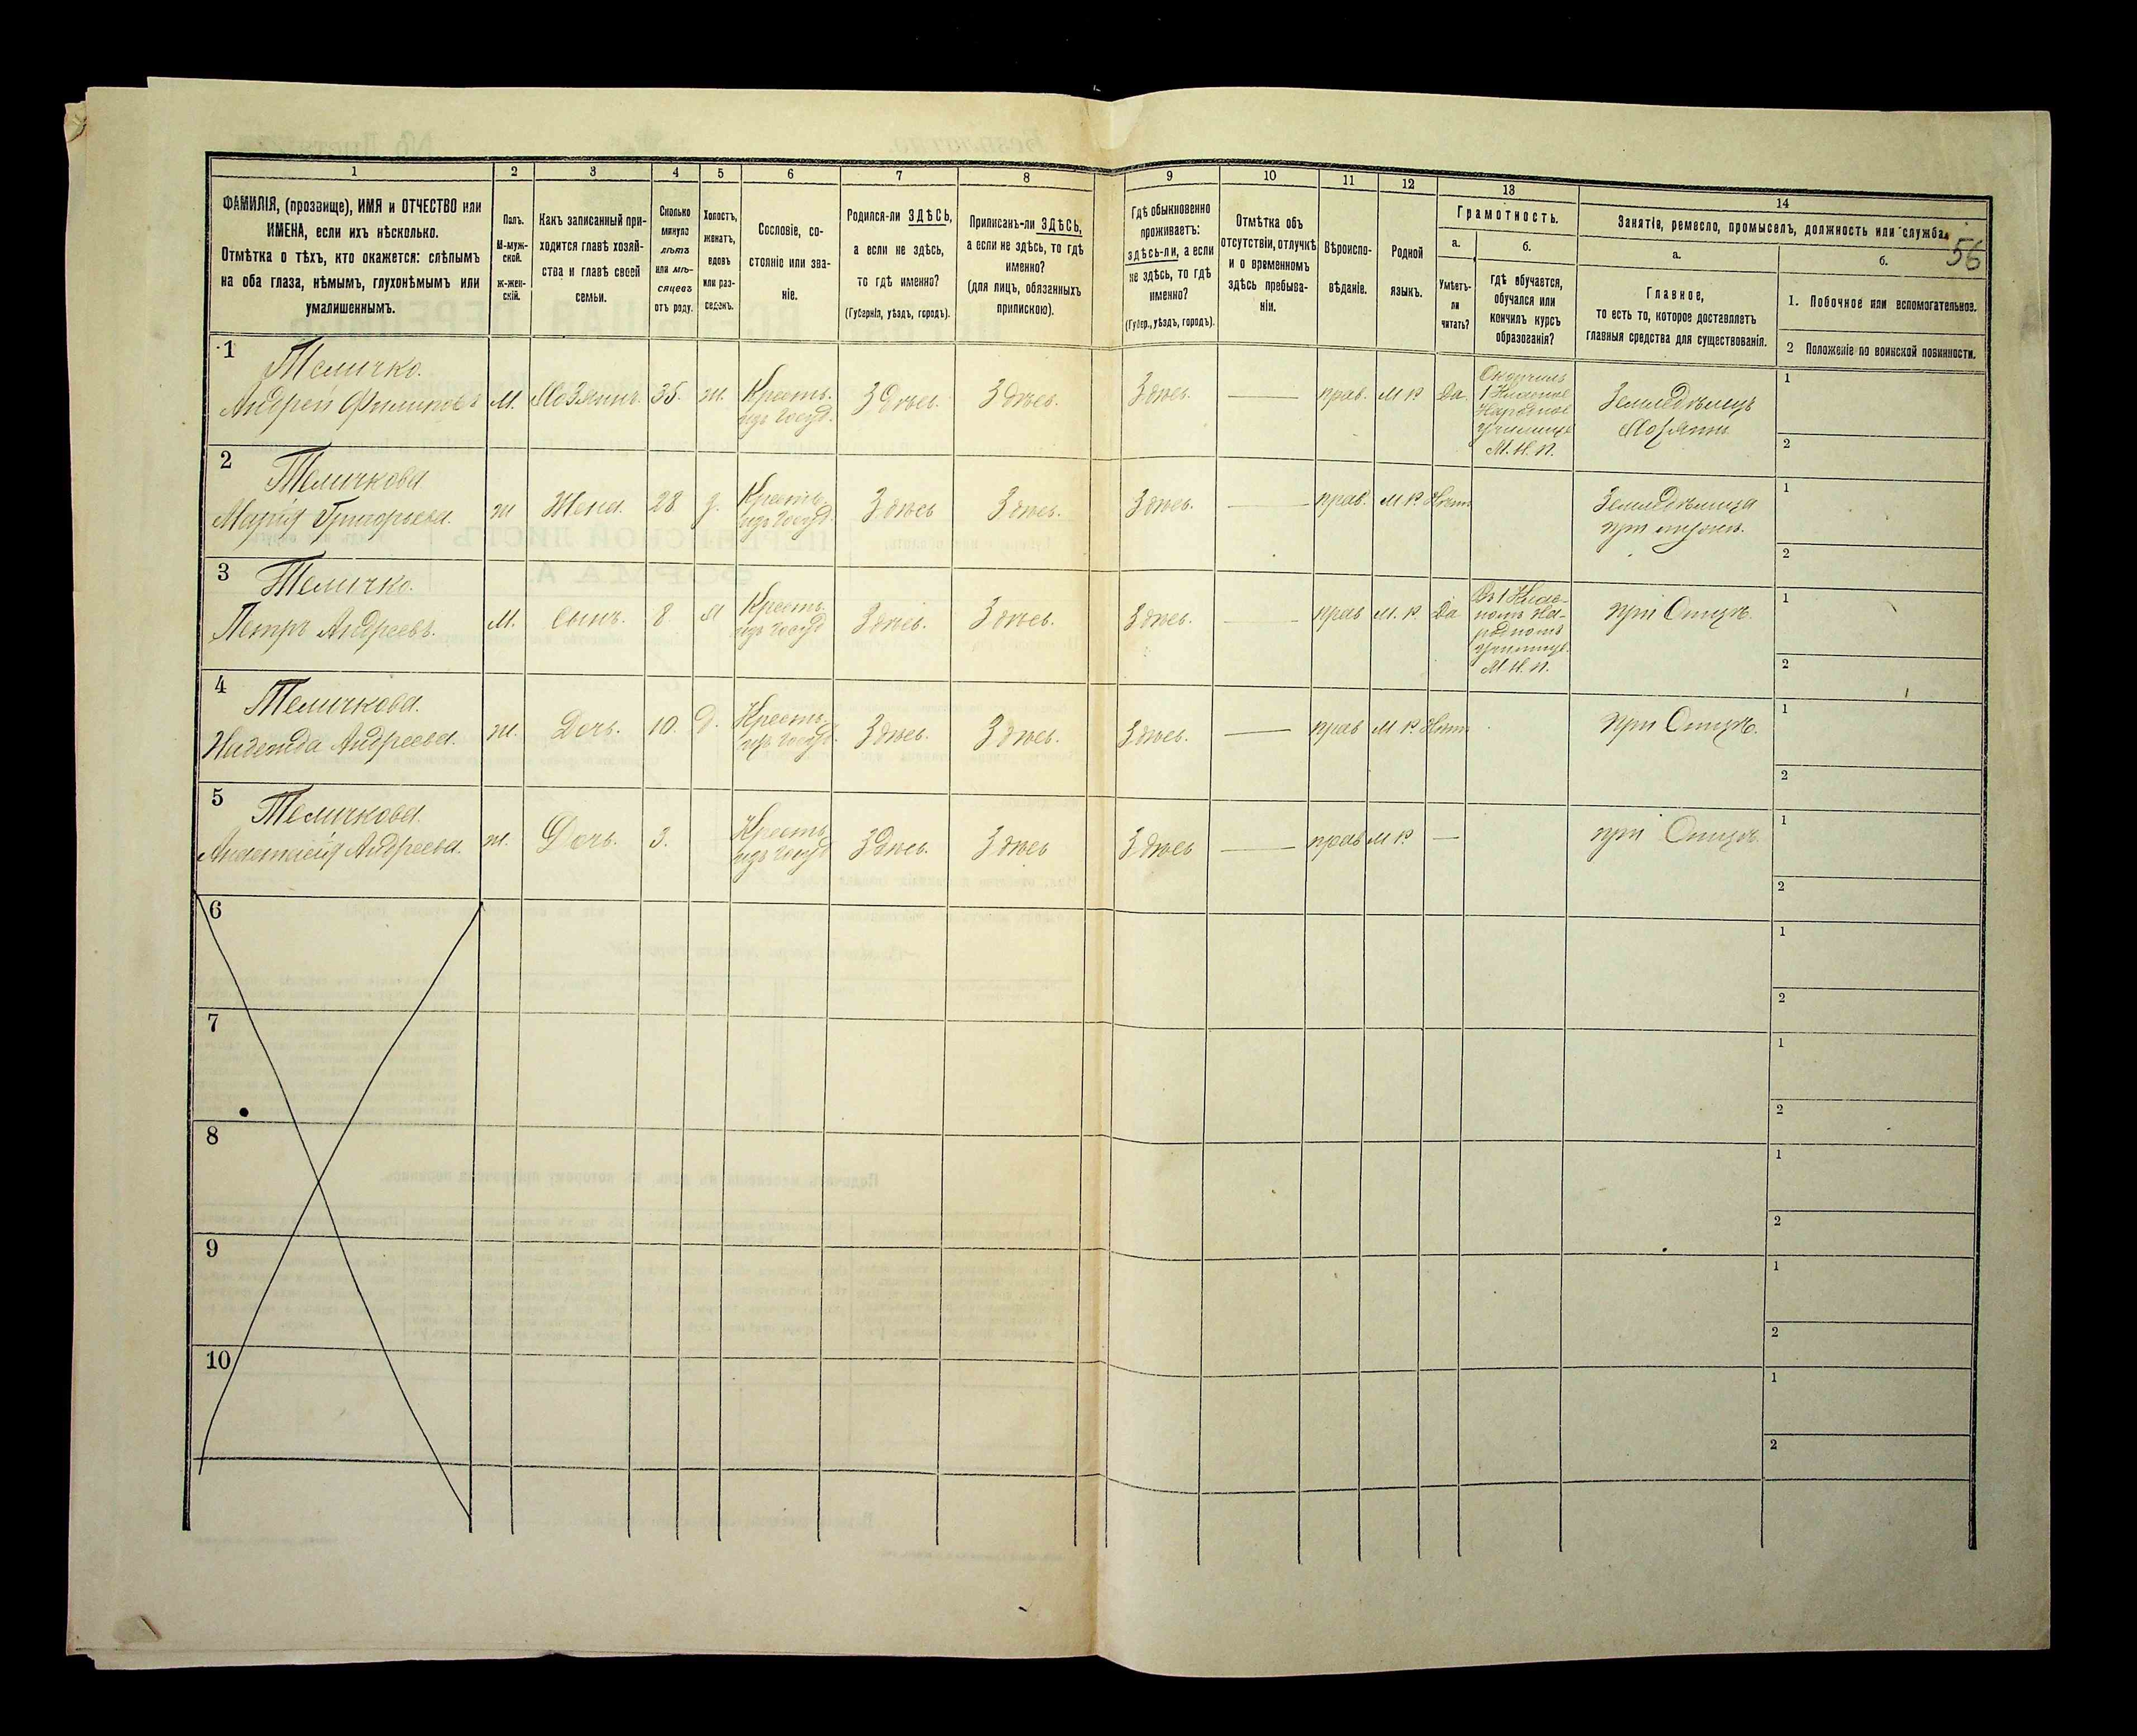 56
1
2
3
4
5
6
7
8
9
10
11
12
13
14
ФАМИЛІЯ, (прозвище), ИМЯ и ОТЧЕСТВО или
ИМЕНА, если ихъ нѣсколько.
Отмѣтка о тѣхъ, кто окажется: слѣпымъ
на оба глаза, нѣмымъ, глухонѣмымъ или
умалишеннымъ.
Полъ.
М-муж-
ской.
Ж-жен-
скій.
Какъ записанный при-
ходится главѣ хозяй-
ства и главѣ своей
семьи.
Сколько
минуло
лѣтъ
или мѣ-
сяцевъ
отъ роду.
Холостъ,
женатъ,
вдовъ
или раз-
веденъ.
Сословіе, со-
стояніе или зва-
ніе.
Родился-ли ЗДѢСЬ,
а если не здѣсь,
то гдѣ именно?
(Губернія, уѣздъ, городъ).
Приписанъ-ли ЗДѢСЬ,
а если не здѣсь, то гдѣ
именно?
(для лицъ, обязанныхъ
припискою).
Гдѣ обыкновенно
проживаетъ:
здѣсь-ли, а если
не здѣсь, то гдѣ
именно?
(Губер., уѣздъ, городъ).
Отмѣтка объ
отсутствіи, отлучкѣ
и о временномъ
здѣсь пребыва-
ніи.
Вѣроиспо-
вѣданіе.
Родной
языкъ.
Грамотность.
а.
Умѣетъ-
ли
читать?
б.
гдѣ обучается,
обучался или
кончилъ курсъ
образованія?
Занятіе, ремесло, промыселъ, должность или служба.
а.
Главное,
то есть то, которое доставляетъ
главныя средства для существованія.
б.
1. Побочное или вспомогательное.
2 Положеніе по воинской повинности.
1
Теличко.
Андрей Филиповъ
М.
Хозяинъ.
35.
ж.
Кресть.
изъ Госуд.
Здѣсь.
Здѣсь.
Здѣсь.
—
прав.
М Р
Да.
Окончилъ
1 Класное
Народное
училище
М. Н. П.
Земледѣлецъ
Хозяинъ
1
2
2
Теличкова
Марія Григорьева.
ж
Жена.
28
з.
Кресть.
изъ Госуд.
Здѣсь
Здѣсь.
Здѣсь.
—
прав.
М Р
Нѣтъ
Земледѣлица
при мужѣ.
1
2
3
Теличко.
Петръ Андреевъ.
М.
Сынъ.
8
Кресть.
изъ Госуд
Здѣсь.
Здѣсь.
Здѣсь.
—
прав
М. Р.
Да
Въ 1 Клас-
номъ На-
родномъ
училищѣ
М. Н. П.
При Отцѣ.
1
2
4
Теличкова.
Надежда Андреева.
ж.
Дочь.
10.
д.
Кресть.
изъ Госуд.
Здѣсь.
Здѣсь.
Здѣсь.
—
прав
М Р.
Нѣтъ
При Отцѣ.
1
2
5
Теличкова.
Анастасія Андреева.
ж.
Дочь.
3.
Кресть
изъ Госуд
Здѣсь.
Здѣсь
Здѣсь
—
прав
М Р.
—
при Отцѣ.
1
2
6
1
2
7
1
2
8
1
2
9
1
2
10
1
2